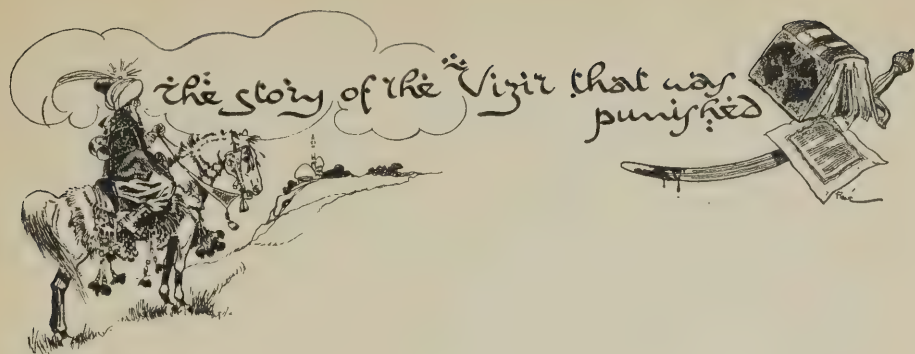 the story of the Vizir that was
punished